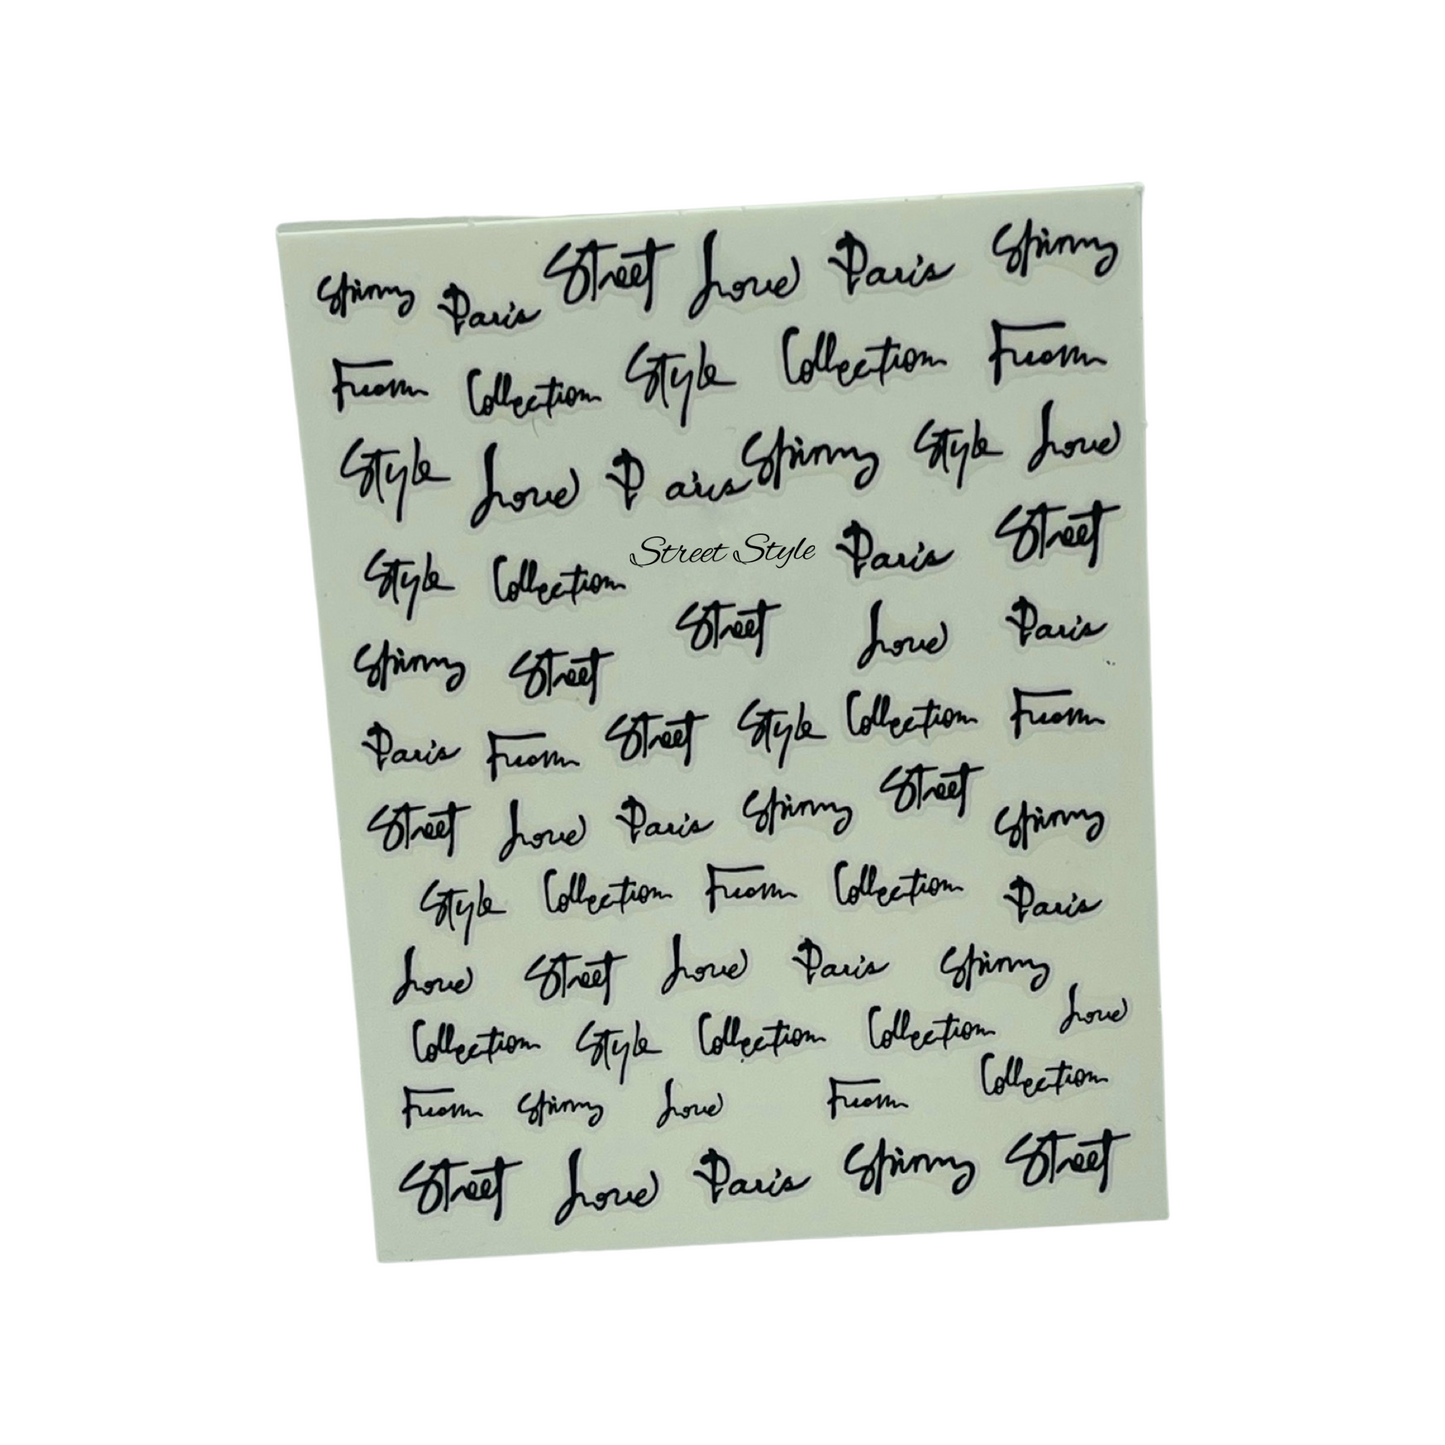 Paris Street Love Paris
From Collection Style Collection From
Style Love Paris Style Love
Style Collection Street Style Paris Street
Street Street Love Paris
Paris From Street Style Collection From
Street Love Paris Street
Style Collection From Collection Paris
Love Street Love Paris
Collection Style Collection Collection Love
From Love From Collection
Street Love Paris Street